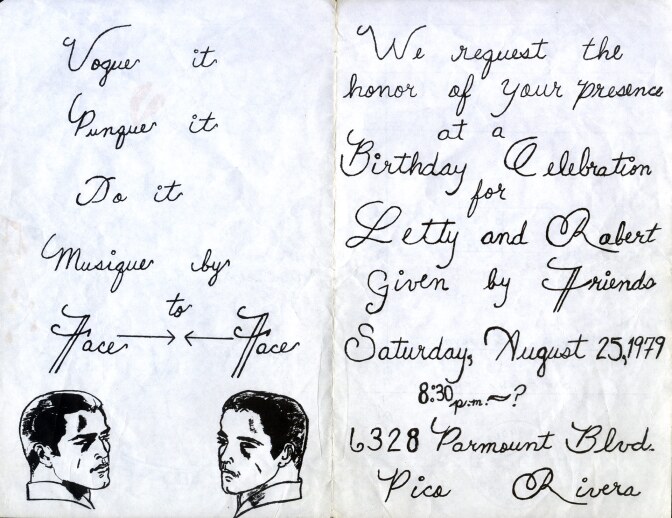 Vogue it
Punque it
Do it
Musique by
Face to Face
We request the
honor of your presence
at a
Birthday Celebration
for
Letty and Robert
Given by Friends
Saturday, August 25, 1979
8:30 p.m. ~ ?
6328 Parmount Blvd.
Pico Rivera